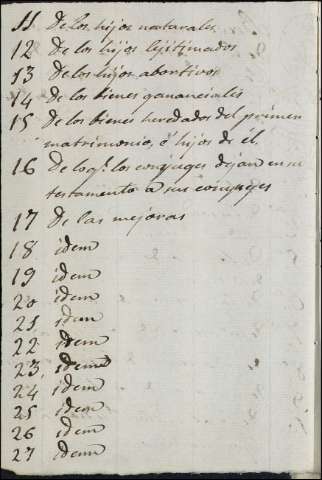 11 De los hijos naturales
12 De los hijos legitimados
13 De los hijos abortivos
14 De los bienes gananciales
15 De los bienes heredados del primer
matrimonio, ó hijos de él.
16 De loq.e los conjuges dejan en su
testamento a sus conjuges
17 De las mejoras
18 idem
19 idem
20 idem
21 idem
22 idem
23 idem
24 idem
25 idem
26 idem
27 idem